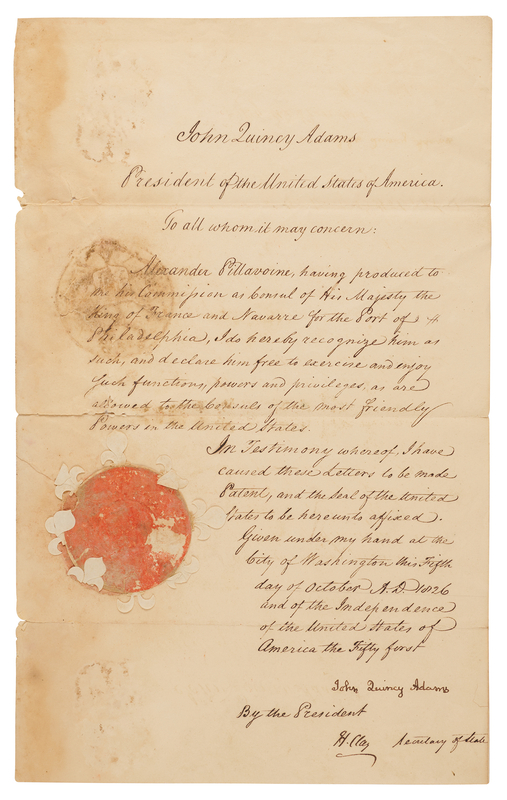 John Quincy Adams
President of the United States of America.
To all whom it may concern:
Alexander Pillavoine, having produced to
me his Commission as Consul of His Majesty the
King of France and Navarre for the Port of
Philadelphia, I do hereby recognize him as
such, and declare him free to exercise and enjoy
such functions, powers and privileges, as are
allowed to the Consuls of the most friendly
Powers in the United States.
In Testimony whereof, I have
caused these Letters to be made
Patent, and the Seal of the United
States to be hereunto affixed.
Given under my hand at the
City of Washington this Fifth
day of October A.D. 1826
and of the Independence
of the United States of
America the Fifty first
John Quincy Adams
By the President
H. Clay Secretary of State